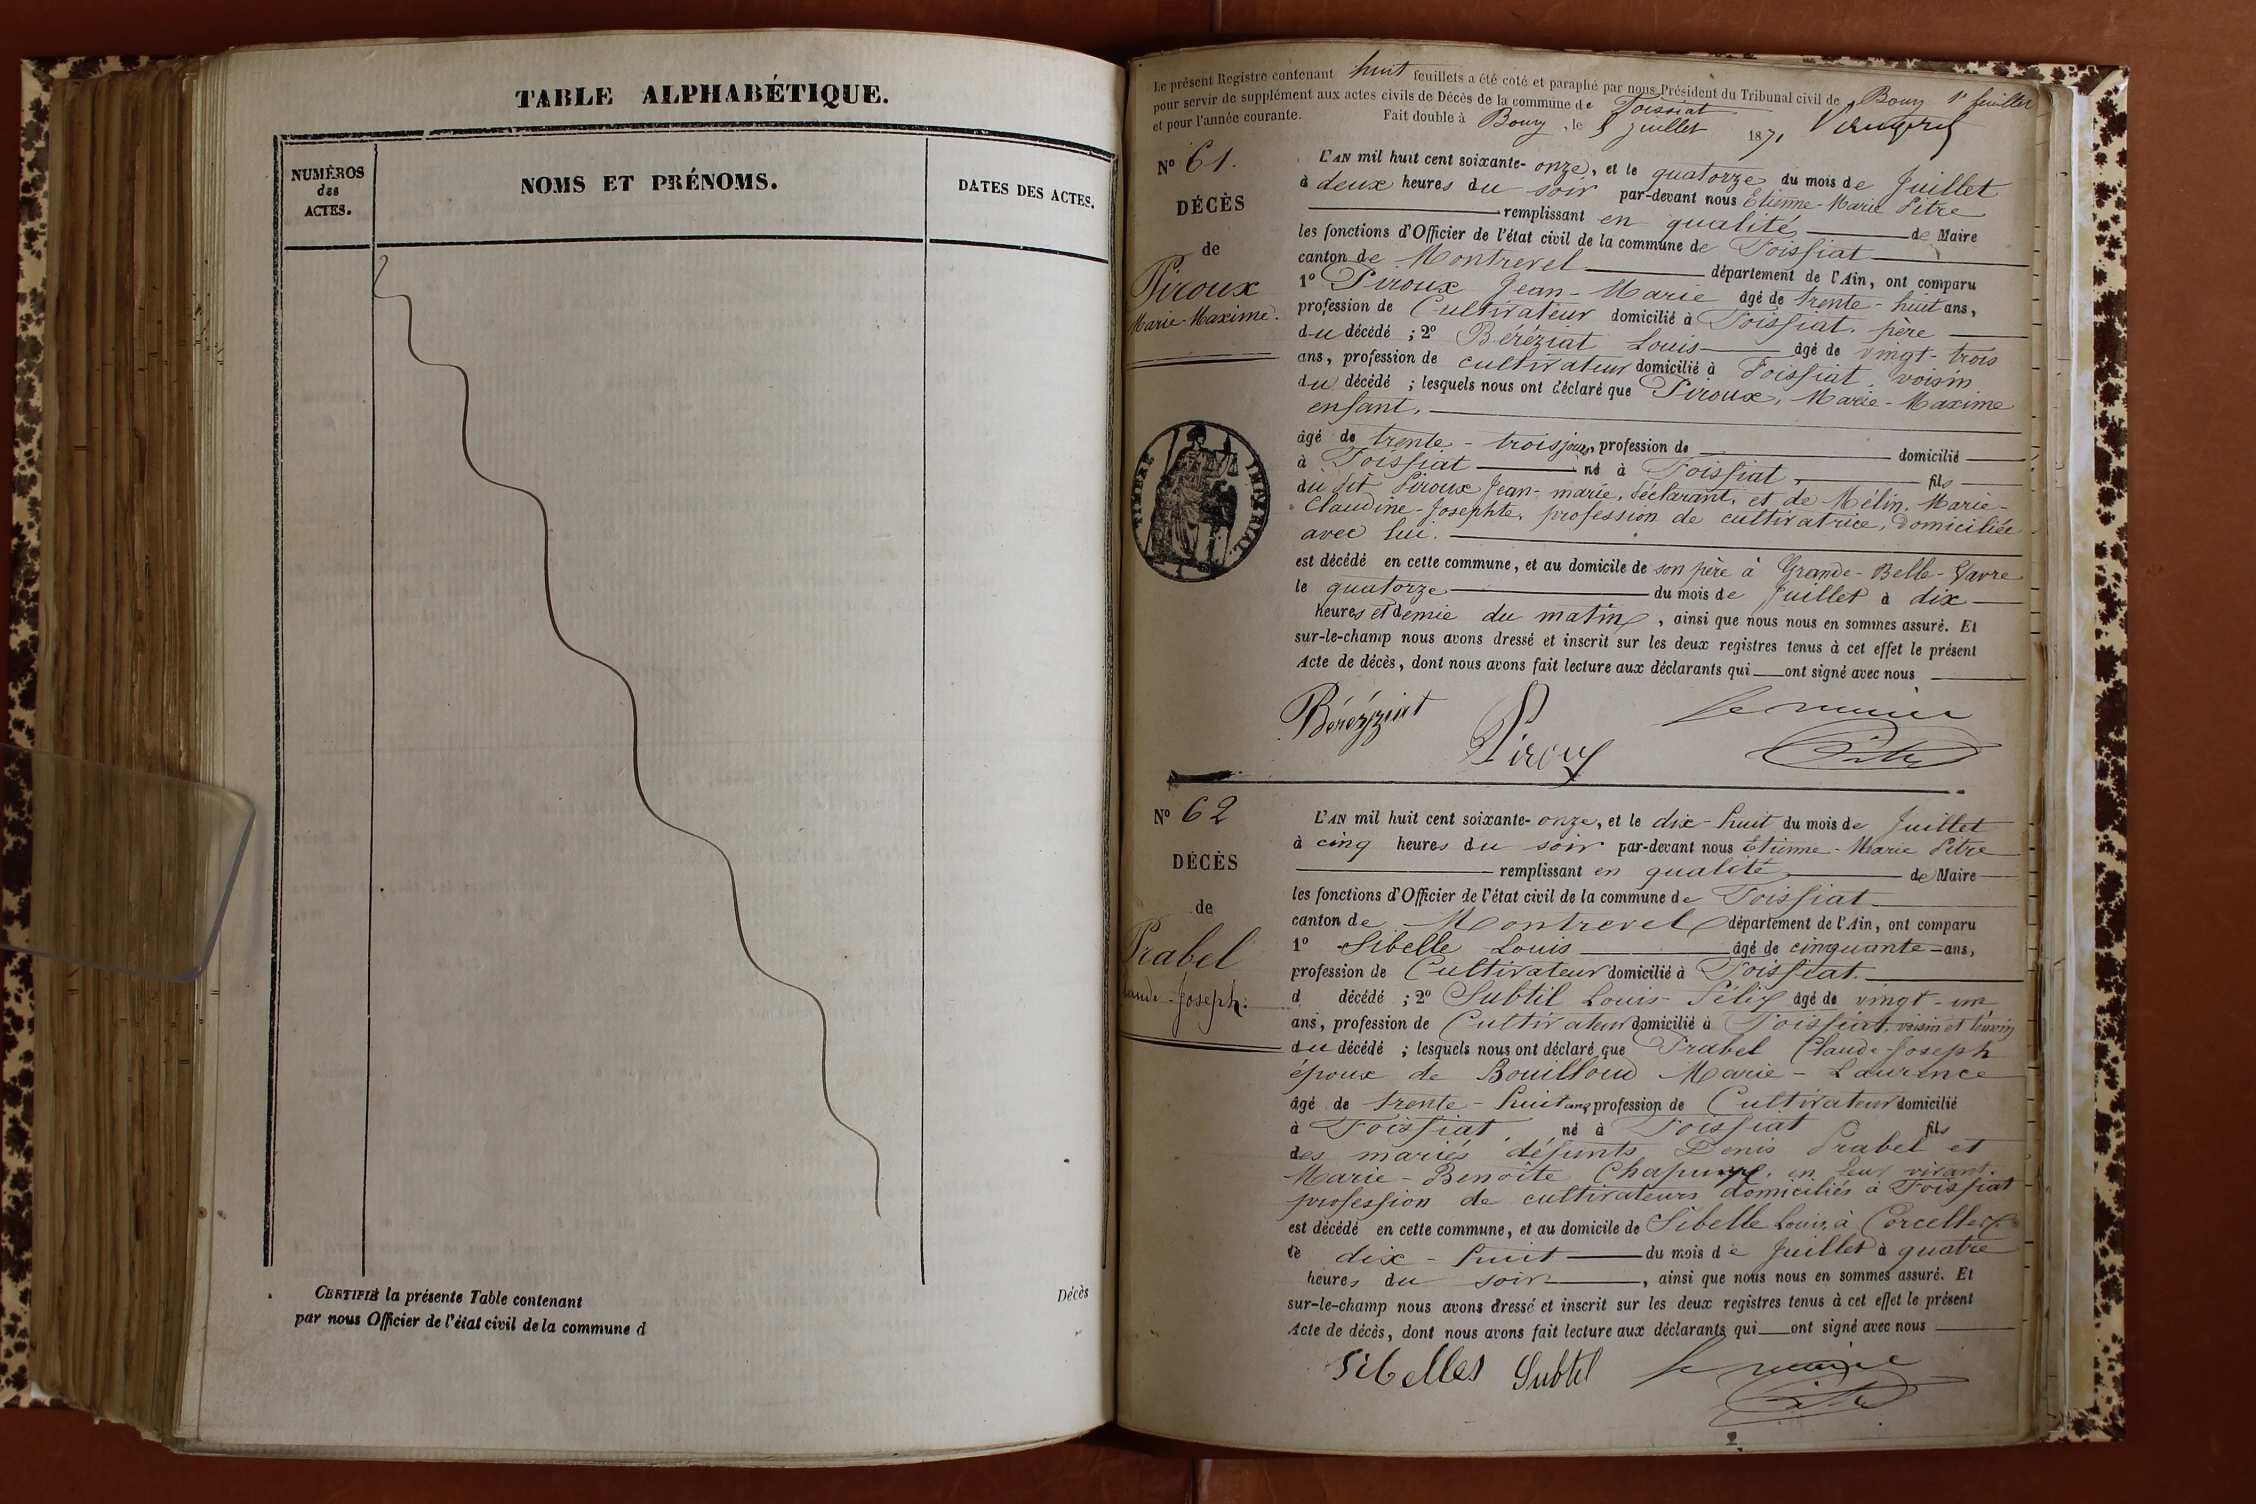 TABLE ALPHABÉTIQUE.
NUMÉROS
des
ACTES.
NOMS ET PRÉNOMS.
DATES DES ACTES.
CERTIFIÉ la présente Table contenant
Décès
par nous Officier de l'état civil de la commune d
Le présent Registre contenant huit feuillets a été coté et paraphé par nous Président du Tribunal civil de Bourg 1er feuillet
pour servir de supplément aux actes civils de Décès de la commune de Foissiat
et pour l'année courante. Fait double à Bourg, le 5 juillet 1871
No 61.
DÉCÈS
de
Piroux
Marie-Maxime.
L'AN mil huit cent soixante-onze, et le quatorze du mois de Juillet
à deux heures du soir par-devant nous Etienne-Marie Pitre
remplissant en qualité de Maire
les fonctions d'Officier de l'état civil de la commune de Foissiat
canton de Montrevel département de l'Ain, ont comparu
1º Piroux Jean-Marie âgé de trente-huit ans,
profession de Cultivateur domicilié à Foissiat, père
du décédé ; 2º Béréziat Louis âgé de vingt-trois
ans, profession de cultivateur domicilié à Foissiat, voisin
du décédé ; lesquels nous ont déclaré que Piroux, Marie-Maxime
enfant,
âgé de trente-trois jours, profession de domicilié
à Foissiat né à Foissiat, fils
du dit Piroux Jean-marie, déclarant, et de Mélin, Marie-
Claudine-Josephte, profession de cultivatrice, domiciliée
avec lui.
est décédé en cette commune, et au domicile de son père à Grande-Belle-
le quatorze du mois de Juillet à dix
heures et demie du matin, ainsi que nous nous en sommes assuré. Et
sur-le-champ nous avons dressé et inscrit sur les deux registres tenus à cet effet le présent
Acte de décès, dont nous avons fait lecture aux déclarants qui ont signé avec nous
TIMBRE IMPÉRIAL
Béréziat
Piroux
Le maire
Pitre
No 62
DÉCÈS
de
Prabel
Claude-Joseph.
L'AN mil huit cent soixante-onze, et le dix-huit du mois de Juillet
à cinq heures du soir par-devant nous Etienne-Marie Pitre
remplissant en qualité de Maire
les fonctions d'Officier de l'état civil de la commune de Foissiat
canton de Montrevel département de l'Ain, ont comparu
1º Sibelle Louis âgé de cinquante ans,
profession de Cultivateur domicilié à Foissiat.
d décédé ; 2º Subtil Louis-Félix âgé de vingt-un
ans, profession de Cultivateur domicilié à Foissiat, voisin et témoin
du décédé ; lesquels nous ont déclaré que Prabel Claude-Joseph
époux de Bouilloud Marie-Laurence
âgé de trente-huit ans, profession de Cultivateur domicilié
à Foissiat, né à Foissiat fils
des mariés défunts Denis Prabel et
Marie-Benoîte en leur vivant
profession de cultivateurs domiciliés à Foissiat
est décédé en cette commune, et au domicile de Sibelle Louis, à Corcelles
le dix-huit du mois de Juillet à quatre
heures du soir, ainsi que nous nous en sommes assuré. Et
sur-le-champ nous avons dressé et inscrit sur les deux registres tenus à cet effet le présent
Acte de décès, dont nous avons fait lecture aux déclarants qui ont signé avec nous
Sibelles Subtil Le maire
Pitre